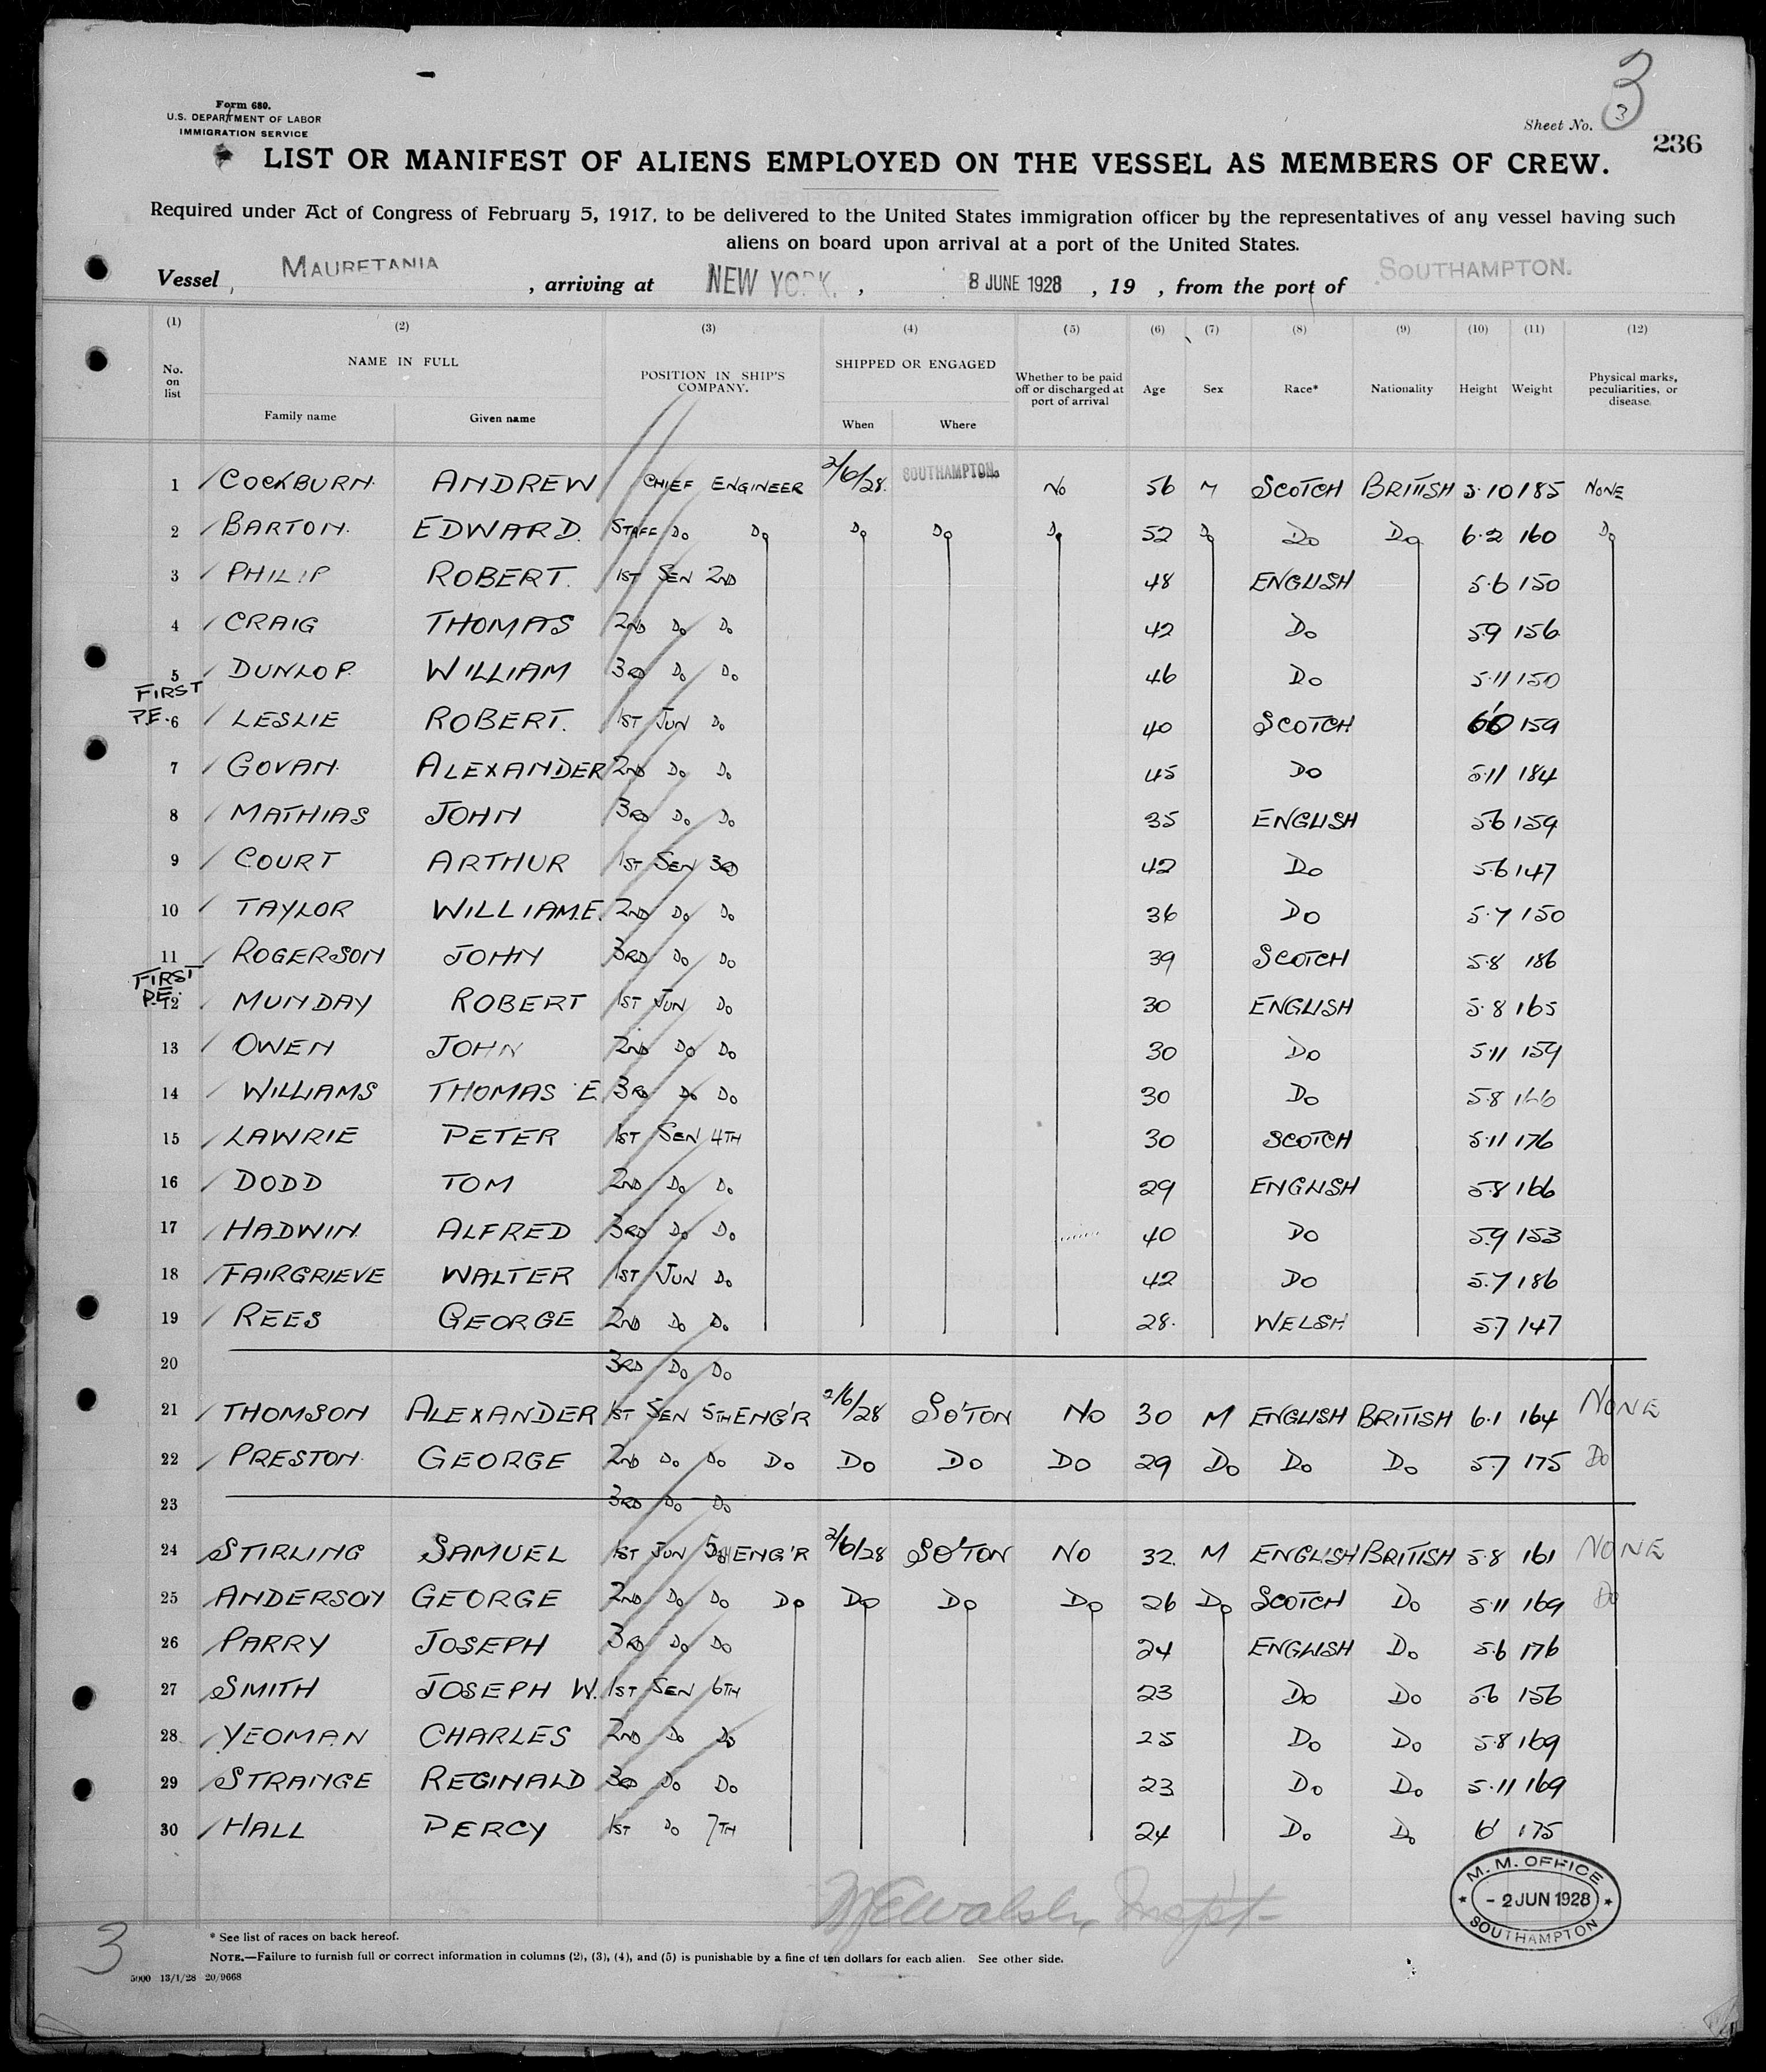 3
Form 680.
U.S. DEPARTMENT OF LABOR
IMMIGRATION SERVICE
Sheet No. 3
236
LIST OR MANIFEST OF ALIENS EMPLOYED ON THE VESSEL AS MEMBERS OF CREW.
Required under Act of Congress of February 5, 1917, to be delivered to the United States immigration officer by the representatives of any vessel having such
aliens on board upon arrival at a port of the United States.
Vessel MAURETANIA, arriving at NEW YORK., 8 JUNE 1928, 19 , from the port of SOUTHAMPTON.
(1) (2) (3) (4) (5) (6) (7) (8) (9) (10) (11) (12)
No. on list NAME IN FULL Family name Given name POSITION IN SHIP'S COMPANY. SHIPPED OR ENGAGED When Where Whether to be paid off or discharged at port of arrival Age Sex Race* Nationality Height Weight Physical marks, peculiarities, or disease.
1 COCKBURN. ANDREW CHIEF ENGINEER 2/6/28. SOUTHAMPTON No 56 M SCOTCH BRITISH 5.10 185 NONE
2 BARTON. EDWARD. STAFF Do Do Do Do Do 52 Do Do Do 6.2 160 Do
3 PHILIP ROBERT. 1ST SEN 2ND 48 ENGLISH 5.6 150
4 CRAIG THOMAS 2ND Do Do 42 Do 5.9 156
5 DUNLOP. WILLIAM 3RD Do Do 46 Do 5.11 150
FIRST
P.E. 6 LESLIE ROBERT. 1ST JUN Do 40 SCOTCH 6'0 159
7 GOVAN. ALEXANDER 2ND Do Do 45 DO 5.11 184
8 MATHIAS JOHN 3RD Do Do 35 ENGLISH 5.6 159
9 COURT ARTHUR 1ST SEN 3RD 42 Do 5.6 147
10 TAYLOR WILLIAM.E. 2ND Do Do 36 DO 5.7 150
11 ROGERSON JOHN 3RD Do Do 39 SCOTCH 5.8 186
FIRST
P.E. 12 MUNDAY ROBERT 1ST JUN Do 30 ENGLISH 5.8 165
13 OWEN JOHN 2ND Do Do 30 Do 5.11 159
14 WILLIAMS THOMAS E 3RD Do Do 30 Do 5.8 166
15 LAWRIE PETER 1ST SEN 4TH 30 SCOTCH 5.11 176
16 DODD TOM 2ND Do Do 29 ENGLISH 5.8 166
17 HADWIN ALFRED 3RD Do Do 40 DO 5.9 153
18 FAIRGRIEVE WALTER 1ST JUN Do 42 DO 5.7 186
19 REES GEORGE 2ND Do Do 28. WELSH 5.7 147
20 3RD Do Do
21 THOMSON ALEXANDER 1ST SEN 5TH ENG'R 2/6/28 SO'TON No 30 M ENGLISH BRITISH 6.1 164 NONE
22 PRESTON. GEORGE 2ND Do Do Do Do Do Do 29 Do Do Do 5.7 175 Do
23 3RD Do Do
24 STIRLING SAMUEL 1ST JUN 5TH ENG'R 2/6/28 SO'TON NO 32 M ENGLISH BRITISH 5.8 161 NONE
25 ANDERSON GEORGE 2ND Do Do Do Do Do Do 26 Do SCOTCH Do 5.11 169 Do
26 PARRY JOSEPH 3RD Do Do 24 ENGLISH Do 5.6 176
27 SMITH JOSEPH W. 1ST SEN 6TH 23 Do Do 5.6 156
28 YEOMAN CHARLES 2ND Do Do 25 Do Do 5.8 169
29 STRANGE REGINALD 3RD Do Do 23 Do Do 5.11 169
30 HALL PERCY 1ST Do 7TH 24 Do Do 6' 175
M. M. OFFICE
- 2 JUN 1928
SOUTHAMPTON
3
* See list of races on back hereof.
NOTE.—Failure to furnish full or correct information in columns (2), (3), (4), and (5) is punishable by a fine of ten dollars for each alien. See other side.
5000 13/1/28 20/9668